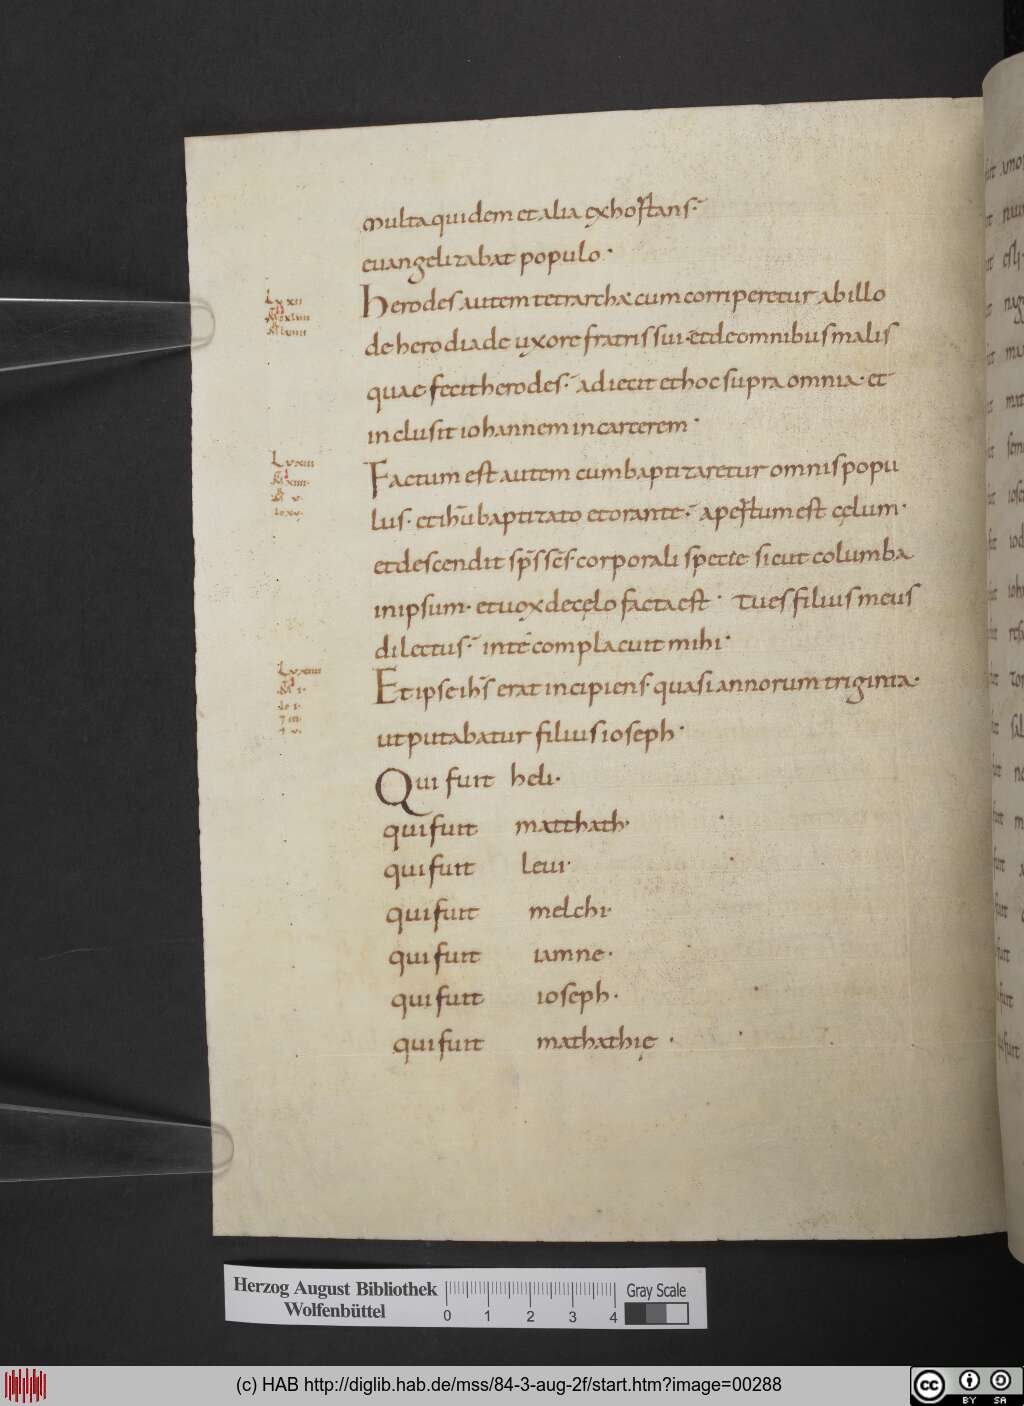 multa quidem et alia exhortans·
euangelizabat populo·
herodes autem tetrarcha cum corriperetur ab illo
de herodiade uxore fratris sui· et de omnibus malis
quae fecit herodes· adiecit et hoc supra omnia· et
inclusit iohannem in carcerem·
Factum est autem cum baptizaretur omnis popu
lus· et ih̄u baptizato et orante· apertum est cęlum·
et descendit sp̄s sc̄s corporali specie sicut columba
in ipsum· et uox de cęlo facta est· Tu es filius meus
dilectus· in te complacuit mihi·
Et ipse ih̄s erat incipiens quasi annorum triginta·
ut putabatur filius ioseph·
Qui fuit heli·
qui fuit matthath·
qui fuit leui·
qui fuit melchi·
qui fuit iamne·
qui fuit ioseph·
qui fuit mathathię·
Herzog August Bibliothek
Wolfenbüttel
0 1 2 3 4
Gray Scale
(c) HAB http://diglib.hab.de/mss/84-3-aug-2f/start.htm?image=00288
cc BY SA